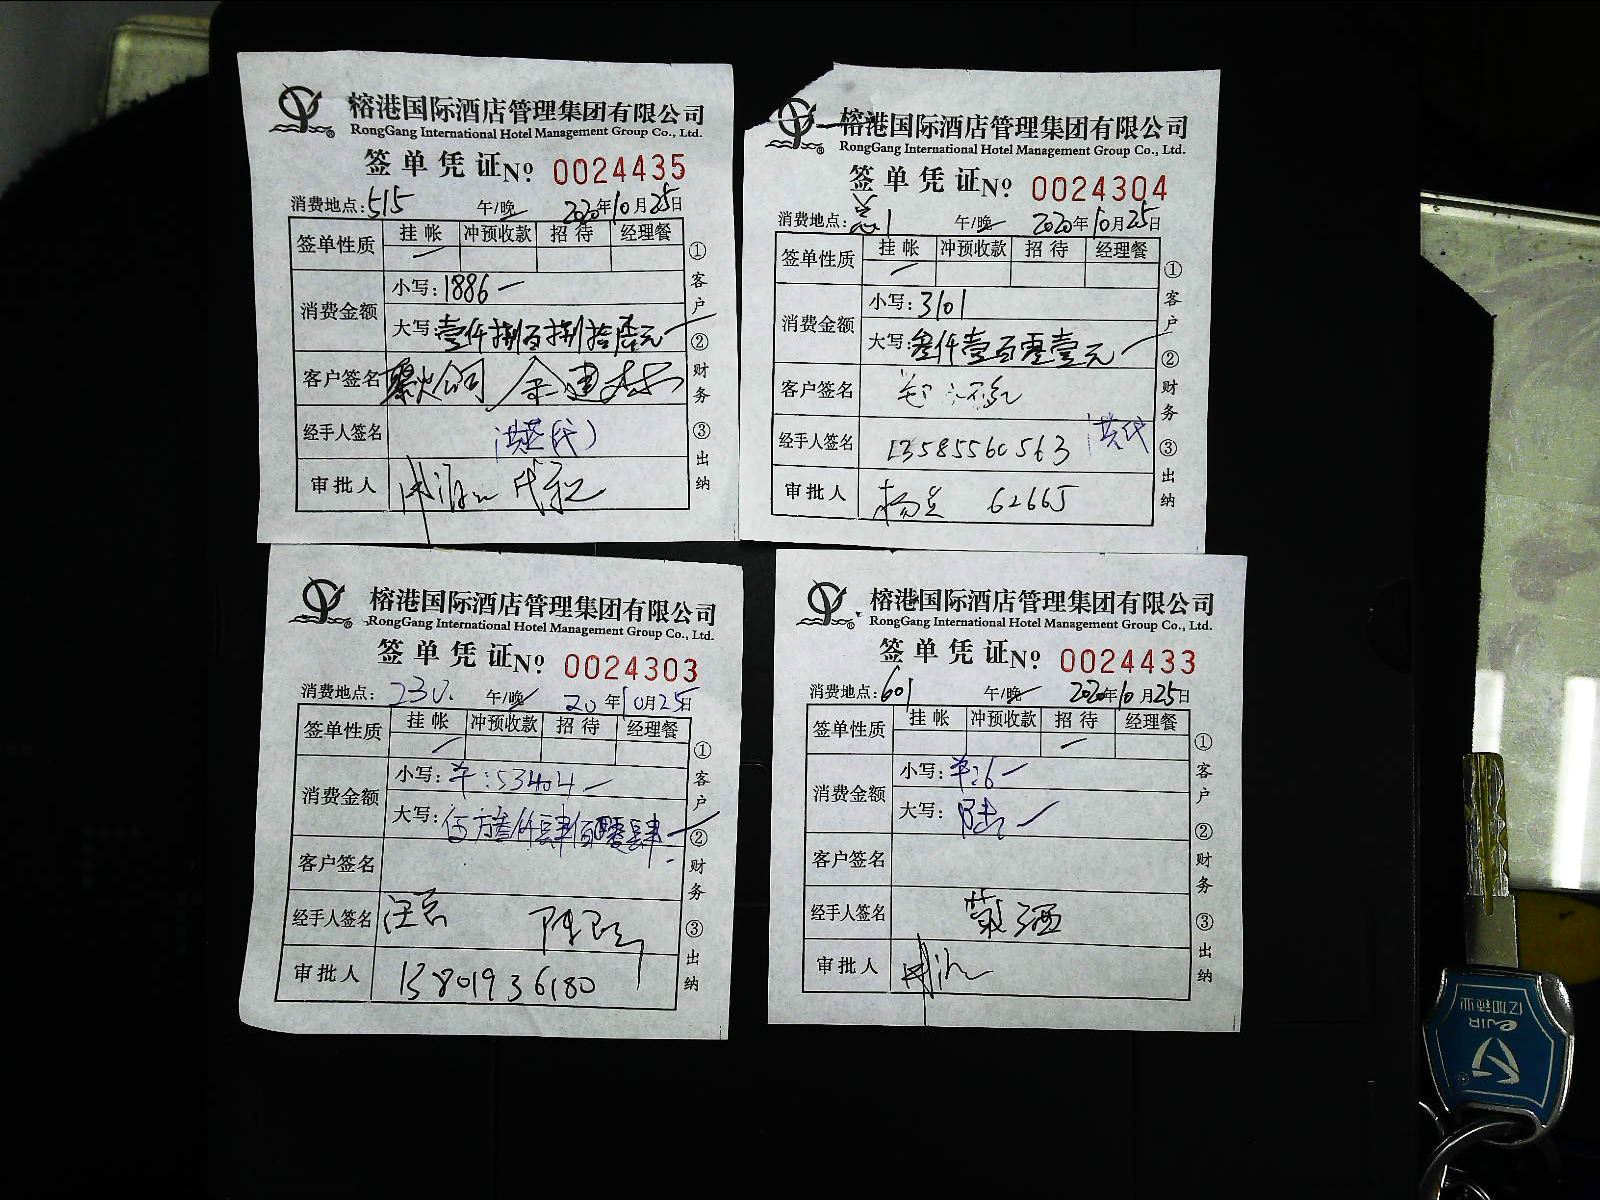 榕港国际酒店管理集团有限公司
RongGang International Hotel Management Group Co., Ltd.
签单凭证 Nº 0024435
消费地点:515 午/晚 2020年10月25日
签单性质 挂帐 冲预收款 招待 经理餐
消费金额 小写:1886
大写:壹仟捌百捌拾陆元
客户签名
经手人签名 (代)
审批人
①客户 ②财务 ③出纳
榕港国际酒店管理集团有限公司
RongGang International Hotel Management Group Co., Ltd.
签单凭证 Nº 0024304
消费地点:总1 午/晚 2020年10月25日
签单性质 挂帐 冲预收款 招待 经理餐
消费金额 小写:3101
大写:叁仟壹百零壹元
客户签名
经手人签名 13585560563 洪代
审批人 62665
①客户 ②财务 ③出纳
榕港国际酒店管理集团有限公司
RongGang International Hotel Management Group Co., Ltd.
签单凭证 Nº 0024303
消费地点: 午/晚 20年10月25日
签单性质 挂帐 冲预收款 招待 经理餐
消费金额 小写:羊:53404
大写:伍万叁仟肆佰零肆
客户签名
经手人签名
审批人 13801936180
①客户 ②财务 ③出纳
榕港国际酒店管理集团有限公司
RongGang International Hotel Management Group Co., Ltd.
签单凭证 Nº 0024433
消费地点:601 午/晚 2020年10月25日
签单性质 挂帐 冲预收款 招待 经理餐
消费金额 小写:羊:6
大写:陆
客户签名
经手人签名
审批人
①客户 ②财务 ③出纳
亿加锁业
eJIA